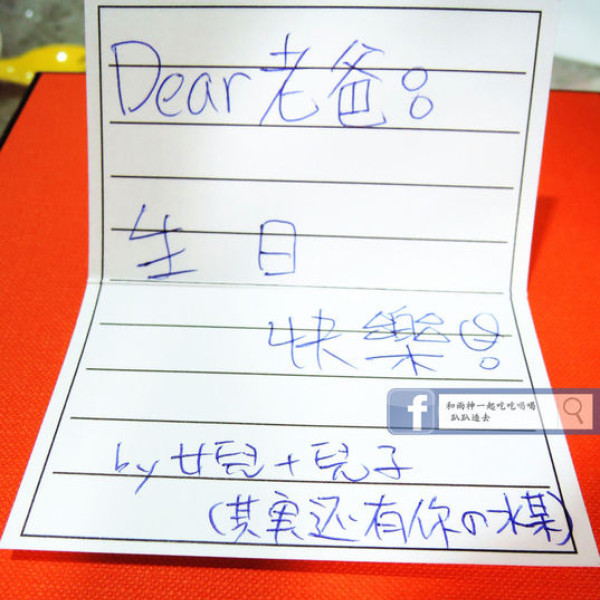 Dear老爸:
生日
快樂!
by 女兒+兒子
(其實还有你の水某)
f
和雨神一起吃吃喝喝
趴趴造去